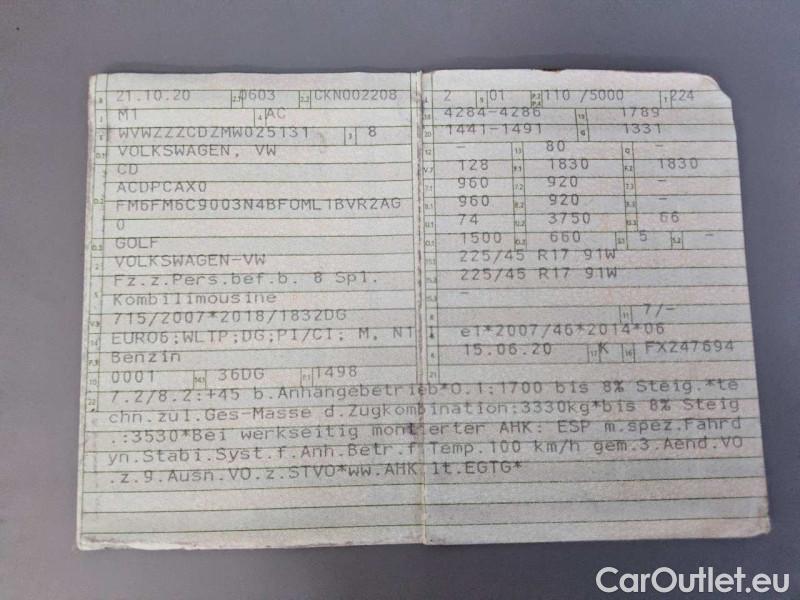 B 21.10.20 2.1 0603 2.2 CKN002208
J M1 4 AC
E WVWZZZCDZMW025131 3 8
D.1 VOLKSWAGEN, VW
CD
ACDPCAX0
D.2 FM6FM6C9003N4BFOML1BVR2AG
0
D.3 GOLF
2 VOLKSWAGEN-VW
5 Fz.z.Pers.bef.b. 8 Spl.
Kombilimousine
V.9 715/2007*2018/1832DG
14 EURO6;WLTP;DG;PI/CI; M, N1 I
P.3 Benzin
10 0001 14.1 36DG P.1 1498
L 2 9 01 P.2 P.4 110 /5000 T 224
18 4284-4286 19 1789
20 1441-1491 G 1331
12 - 13 80 Q -
V.7 128 F.1 1830 F.2 1830
7.1 960 7.2 920 7.3 -
8.1 960 8.2 920 8.3 -
U.1 74 U.2 3750 U.3 66
O.1 1500 O.2 660 S.1 5 S.2 -
15.1 225/45 R17 91W
15.2 225/45 R17 91W
15.3 -
R 11 7/-
K e1*2007/46*2014*06
6 15.06.20 17 K 16 FX247694
21
22 7.2/8.2:+45 b.Anhängebetrieb*O.1:1700 bis 8% Steig.*te
chn.zul.Ges-Masse d.Zugkombination:3330kg*bis 8% Steig
.:3530*Bei werkseitig montierter AHK: ESP m.spez.Fahrd
yn.Stabi.Syst.f.Anh.Betr.f.Temp.100 km/h gem.3.Aend.VO
.z.9.Ausn.VO.z.STVO*ww.AHK lt.EGTG*
CarOutlet.eu